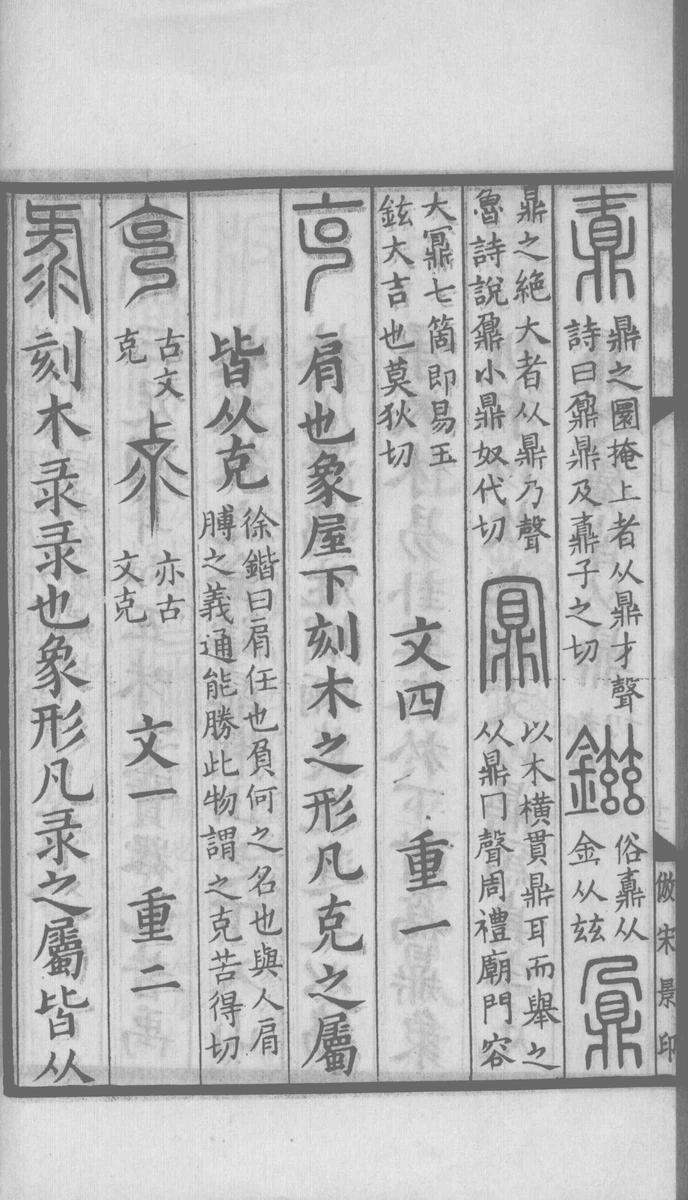 鼒 鼎之圜掩上者从鼎才聲詩曰鼐鼎及鼒子之切 鎡 俗鼒从金从兹 鼐
鼎之絕大者从鼎乃聲魯詩說鼐小鼎奴代切 鼏 以木橫貫鼎耳而舉之从鼎冂聲周禮廟門容
大鼏七箇即易玉鉉大吉也莫狄切 文四 重一
克 肩也象屋下刻木之形凡克之屬
皆从克 徐鍇曰肩任也負何之名也與人肩膊之義通能勝此物謂之克苦得切
𠅏 古文克 𠧳 亦古文克 文一 重二
彔 刻木彔彔也象形凡彔之屬皆从
倣宋景印